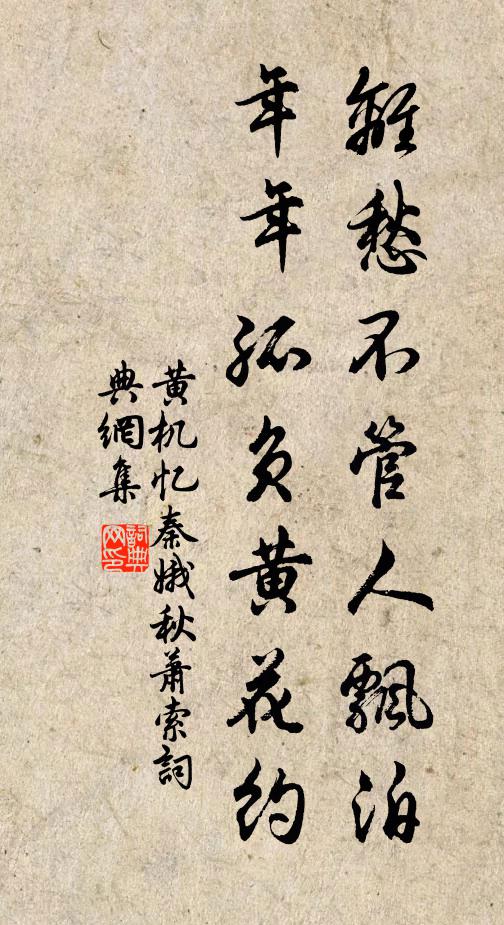 離愁不管人飄泊
年年孤负黄花約
黄机忆秦娥秋萧索詞
典網集
詞典
网印